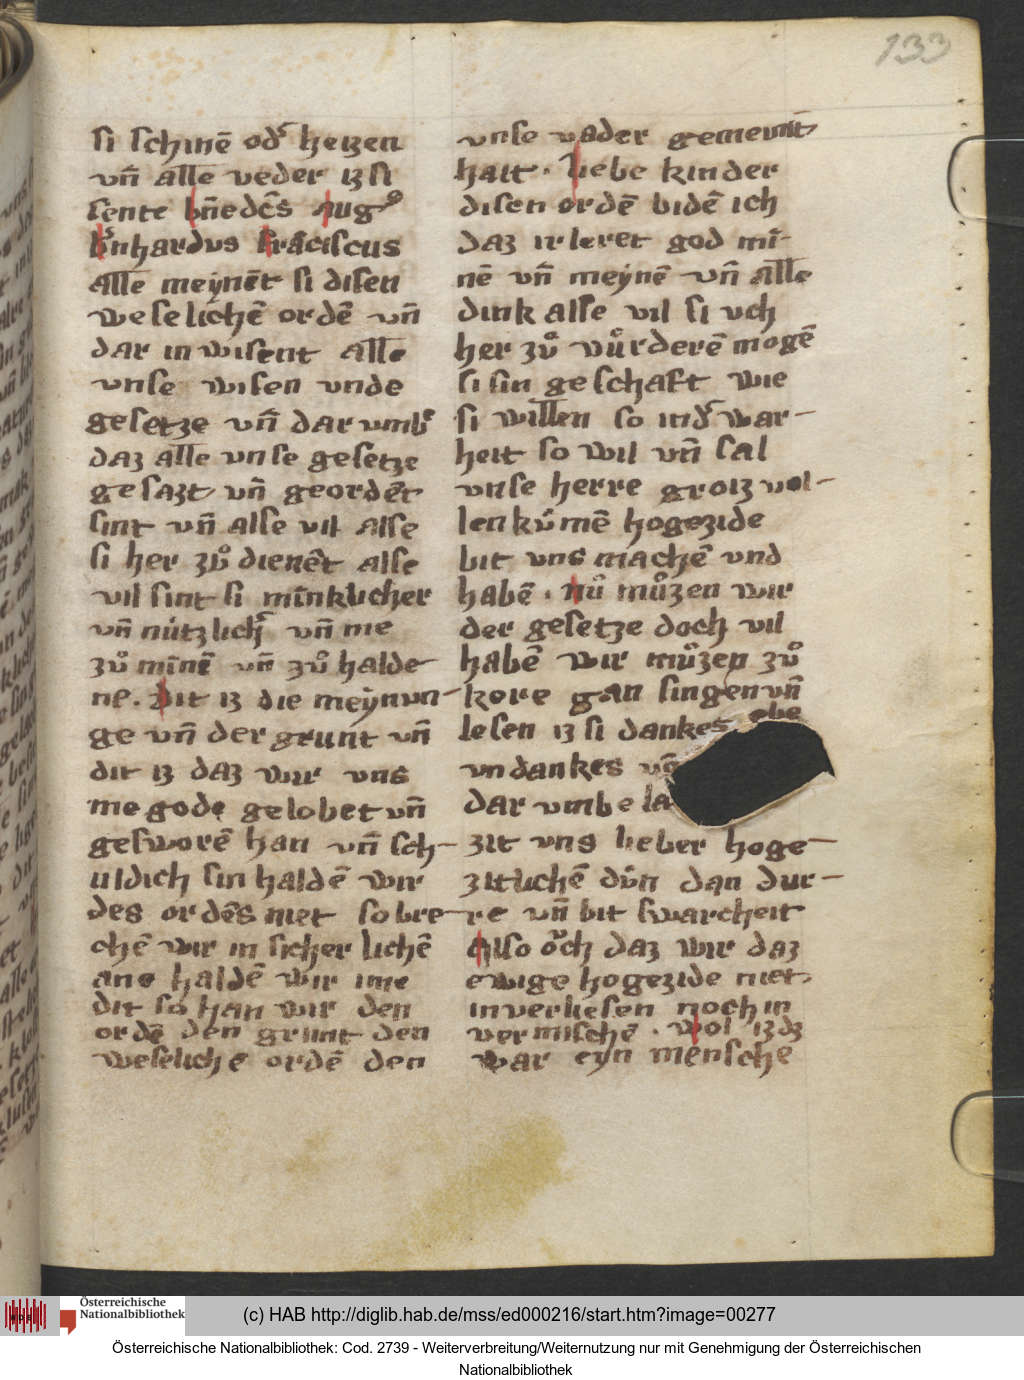 133
si schinē od᷑ heizen
vn̄ alle veder iz si
sente bn̄edcs̄ Augꝰ
b᷑nhardvs frāciscus
alle meẏnēt si disen
weselichē ordē vn̄
dar in wisent alle
vnse wisen vnde
gesetze vn̄ dar vmb᷑
daz alle vnse gesetze
gesazt vn̄ geordēt
sint vn̄ alse vil alse
si her zvͦ dienēt alse
vil sint si mīnklicher
vn̄ nútzlich᷑ vn̄ me
zvͦ mīnē vn̄ zvͦ halde
ne. Dit iz die meẏnvn-
ge vn̄ der grunt vn̄
dit iz daz wir vns
me gode gelobet vn̄
gesworē han vn̄ sch-
uldich sin haldē wir
des ordēs niet so bre-
chē wir in sicherlichē
ane haldē wir ime
dit so han wir den
ordē den grunt den
weselichē ordē den
vnse vader gemeinit
hait. Liebe kinder
disen ordē bidē ich
daz ir leret god mī-
nē vn̄ meẏnē vn̄ alle
dink alse vil si vch
her zvͦ vvͦrderē mogē
si sin geschaft wie
si willen so ind᷑ war-
heit so wil vn̄ sal
vnse herre groiz vol-
lenkv́mē hogezide
bit vns machē vnd
habē. nuͦ muͦzen wir
der gesetze doch vil
habē wir muͦzen zvͦ
kore gan singen vn̄
lesen iz si dankes obe
vndankes vn̄
dar vmbe la
zit vns lieber hoge-
zitlichē dv́n dan dur-
re vn̄ bit swarcheit
Also oͮch daz wir daz
ewige hogezide niet
in verliesen noch in
vermischē. wol iz dz
war eyn mensche
(c) HAB http://diglib.hab.de/mss/ed000216/start.htm?image=00277
Österreichische
Nationalbibliothek
Österreichische Nationalbibliothek: Cod. 2739 - Weiterverbreitung/Weiternutzung nur mit Genehmigung der Österreichischen
Nationalbibliothek